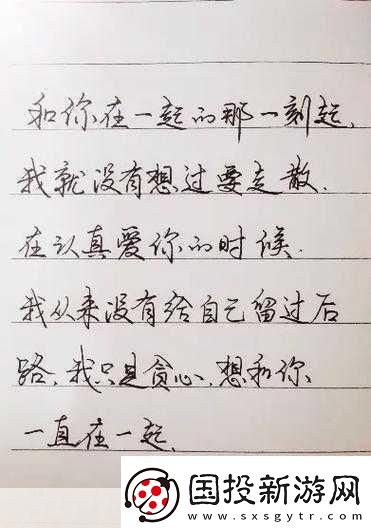 和你在一起的那一刻起,
我就没有想过要走散.
在认真爱你的时候.
我从来没有给自己留过后
路,我只是贪心,想和你、
一直在一起.
国投新游网
www.sxsgytr.com